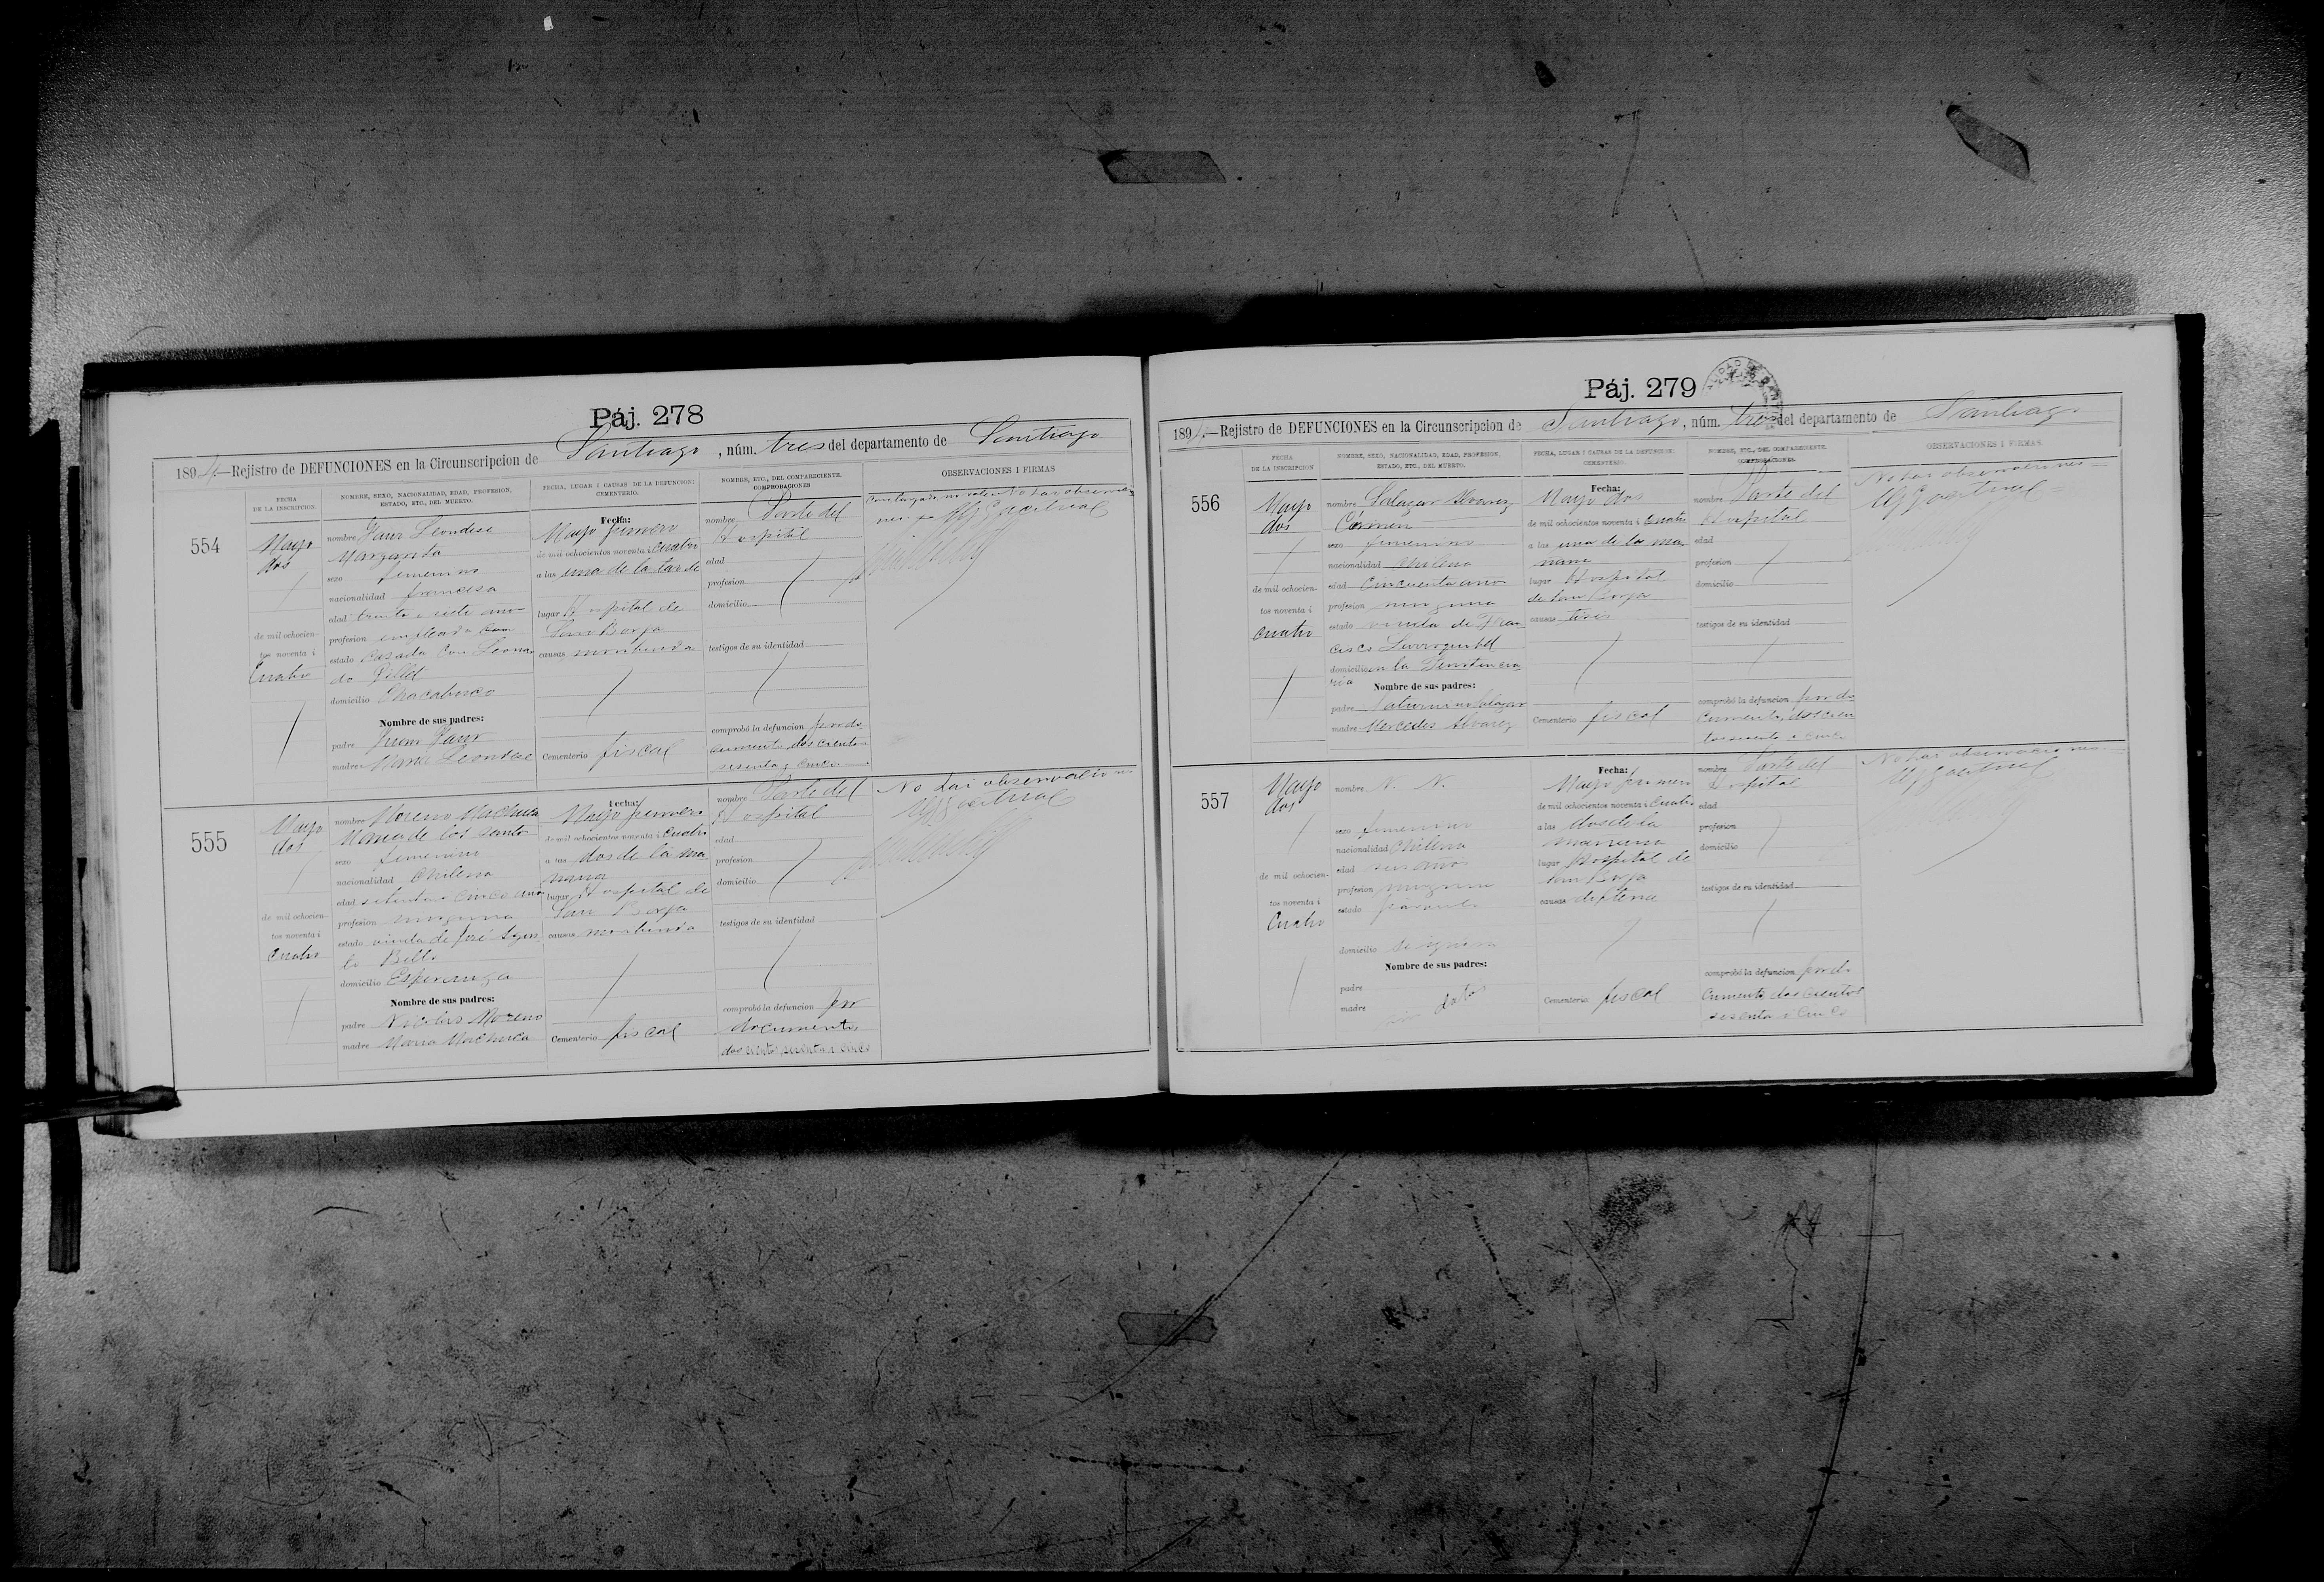 Páj. 278
1894.—Rejistro de DEFUNCIONES en la Circunscripcion de Santiago, núm. tres del departamento de Santiago
FECHA
DE LA INSCRIPCION.
NOMBRE, SEXO, NACIONALIDAD, EDAD, PROFESION,
ESTADO, ETC., DEL MUERTO.
FECHA, LUGAR I CAUSAS DE LA DEFUNCION:
CEMENTERIO.
NOMBRE, ETC., DEL COMPARECIENTE.
COMPROBACIONES
OBSERVACIONES I FIRMAS
554
Mayo
dos
de mil ochocien-
tos noventa i
Cuatro
nombre
Margarita
sexo femenino
nacionalidad francesa
edad treinta i siete años
profesion empleada
estado casada con Leonar
do
domicilio Chacabuco
Nombre de sus padres:
padre Juan
madre Maria
Fecha:
Mayo primero
de mil ochocientos noventa i Cuatro
a las una de la tarde
lugar Hospital de
San Borja
causas moribunda
Cementerio fiscal
nombre Parte del
Hospital
edad
profesion
domicilio
testigos de su identidad
comprobó la defuncion por do-
cumento doscientos
sesenta y cinco
No hai observacio
nes
555
Mayo
dos
de mil ochocien-
tos noventa i
Cuatro
nombre Moreno Machuca
Maria de los Santos
sexo femenino
nacionalidad Chilena
edad setenta i cinco años
profesion ninguna
estado viuda de José Agus
to
domicilio Esperanza
Nombre de sus padres:
padre Nicolas Moreno
madre Maria Machuca
Fecha:
Mayo primero
de mil ochocientos noventa i Cuatro
a las dos de la ma
ñana
lugar Hospital de
San Borja
causas moribunda
Cementerio fiscal
nombre Parte del
Hospital
edad
profesion
domicilio
testigos de su identidad
comprobó la defuncion por
documento
doscientos sesenta i cinco
No hai observaciones
Páj. 279
1894.—Rejistro de DEFUNCIONES en la Circunscripcion de Santiago, núm. tres del departamento de Santiago
FECHA
DE LA INSCRIPCION
NOMBRE, SEXO, NACIONALIDAD, EDAD, PROFESION,
ESTADO, ETC., DEL MUERTO.
FECHA, LUGAR I CAUSAS DE LA DEFUNCION:
CEMENTERIO.
NOMBRE, ETC., DEL COMPARECIENTE.
COMPROBACIONES.
OBSERVACIONES I FIRMAS.
556
Mayo
dos
de mil ochocien-
tos noventa i
cuatro
nombre Salazar Alvarez
Cármen
sexo femenino
nacionalidad Chilena
edad Cincuenta años
profesion ninguna
estado viuda de Fran
cisco
domicilio en la Penitencia
ria
Nombre de sus padres:
padre Saturnino Salazar
madre Mercedes Alvarez
Fecha:
Mayo dos
de mil ochocientos noventa i Cuatro
a las una de la ma
ñana
lugar Hospital
de San Borja
causas tisis
Cementerio fiscal
nombre Parte del
Hospital
edad
profesion
domicilio
testigos de su identidad
comprobó la defuncion por do
cumento doscien
tos sesenta i cinco
No hai observaciones
557
Mayo
dos
de mil ochocien-
tos noventa i
Cuatro
nombre N. N.
sexo femenino
nacionalidad Chilena
edad seis años
profesion ninguna
estado párvulo
domicilio se ignora
Nombre de sus padres:
padre
madre sin datos
Fecha:
Mayo primero
de mil ochocientos noventa i Cuatro
a las dos de la
mañana
lugar Hospital de
San Borja
causas difteria
Cementerio fiscal
nombre Parte del
Hospital
edad
profesion
domicilio
testigos de su identidad
comprobó la defuncion por do
cumento doscientos
sesenta i cinco
No hai observaciones